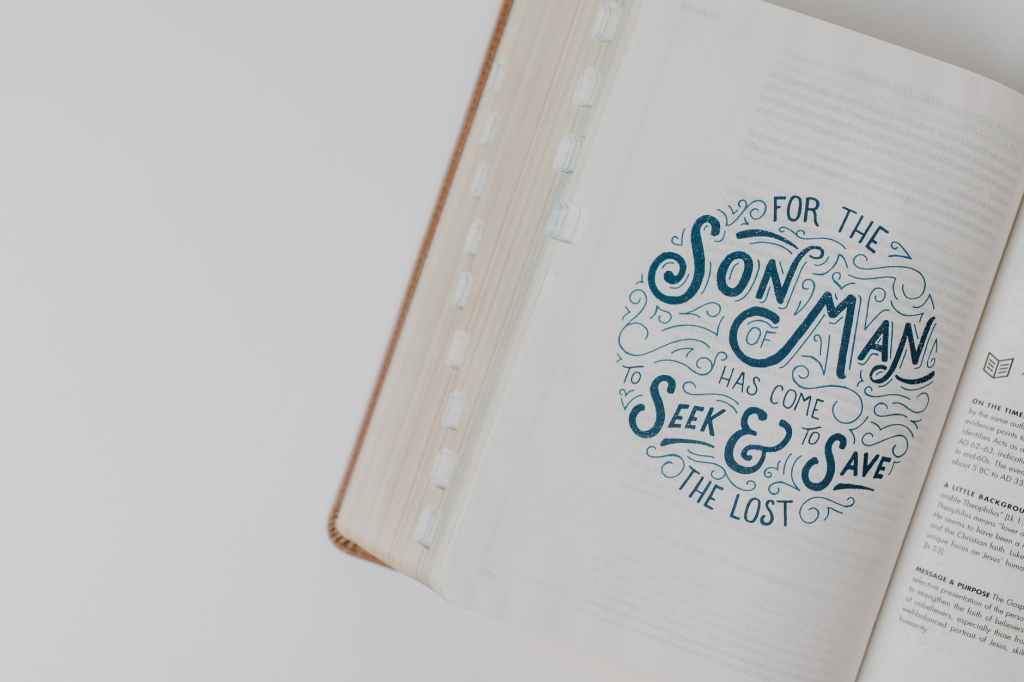 FOR THE
SON
OF MAN
HAS COME
TO SEEK & TO SAVE
THE LOST
ON THE TIME
by the same auth
evidence points t
identifies Acts as a
AD 62–63, indicati
in mid-60s. The even
about 5 BC to AD 33
A LITTLE BACKGROU
orable Theophilus" (Lk 1
Theophilus means "lover o
He seems to have been a
and the Christian faith. Luke
unique focus on Jesus' huma
MESSAGE & PURPOSE The Gosp
selective presentation of the perso
to strengthen the faith of believers
of unbelievers, especially those fro
well-balanced portrait of Jesus, skil
humanity.